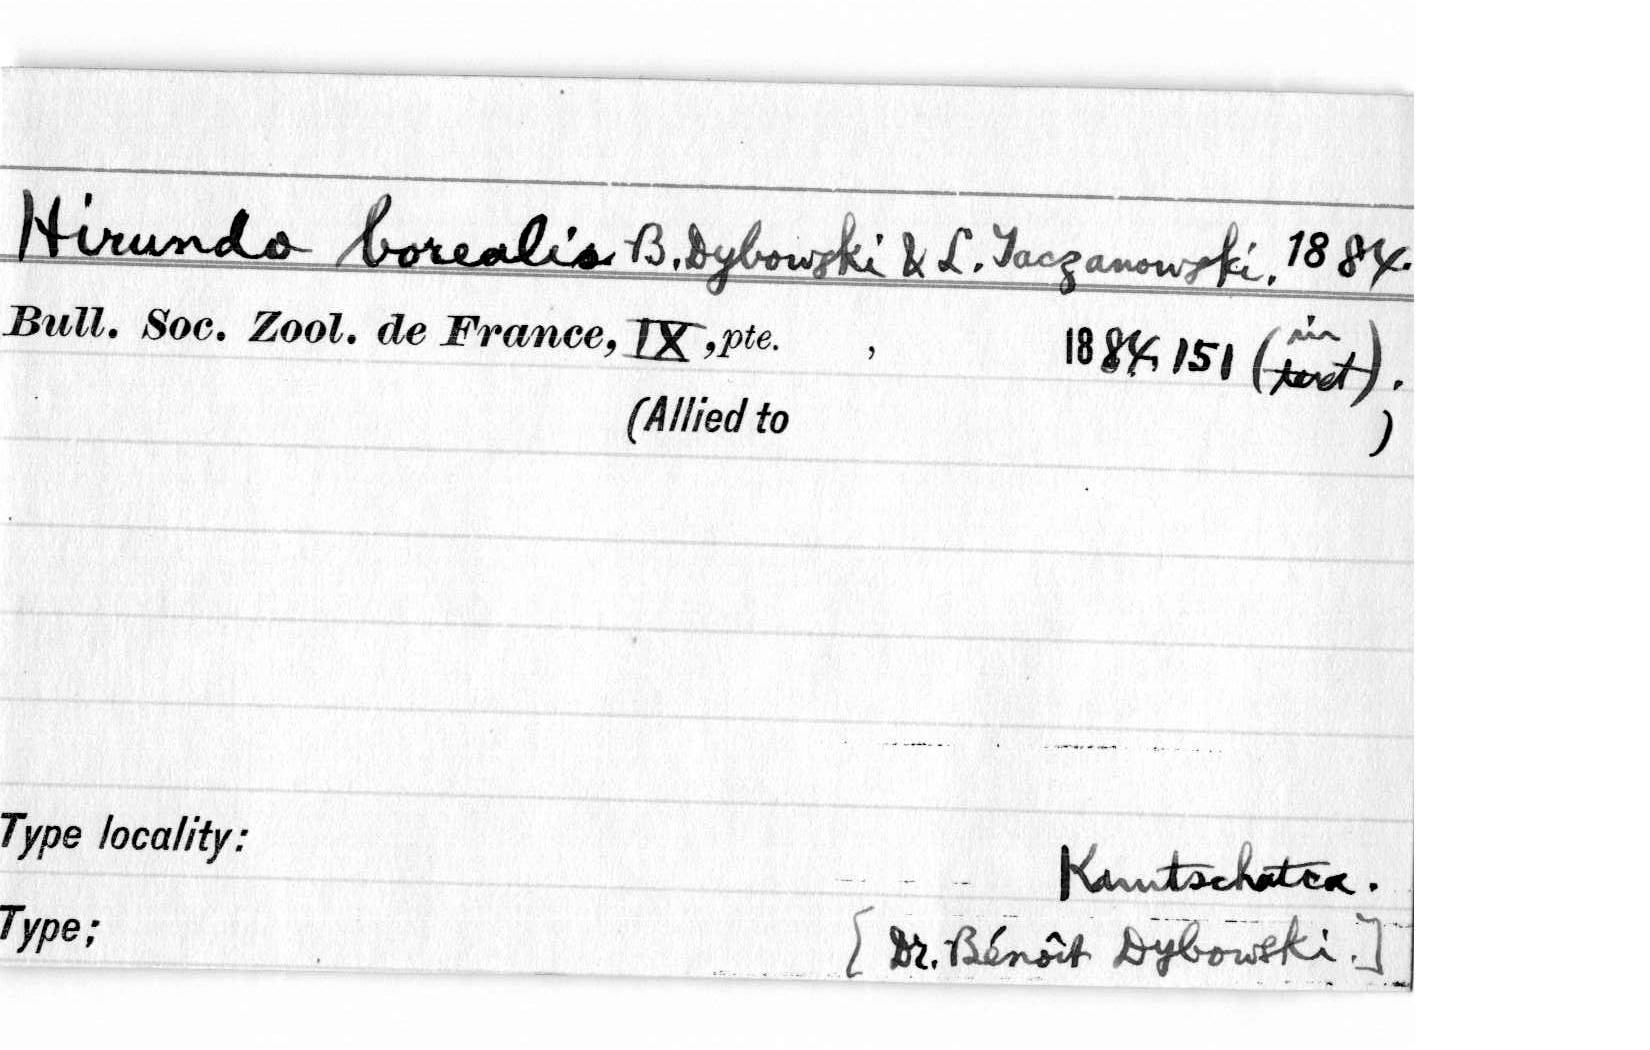 Hirundo borealis B. Dybowski & L. Taczanowski, 1884.
Bull. Soc. Zool. de France, IX, pte. , 1884, 151 (in text).
(Allied to )
Type locality:
Kamtschatca.
Type; [Dr. Bénoît Dybowski.]